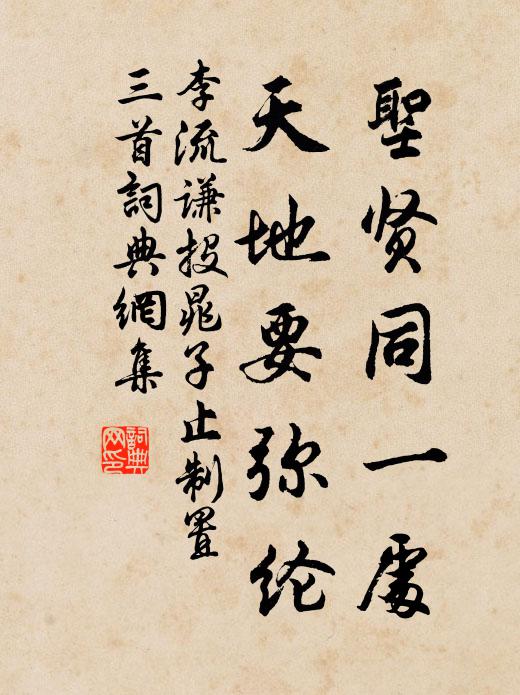 聖贤同一處
天地要弥纶
李流谦投晁子止制置
三首詞典網集
詞典
网印